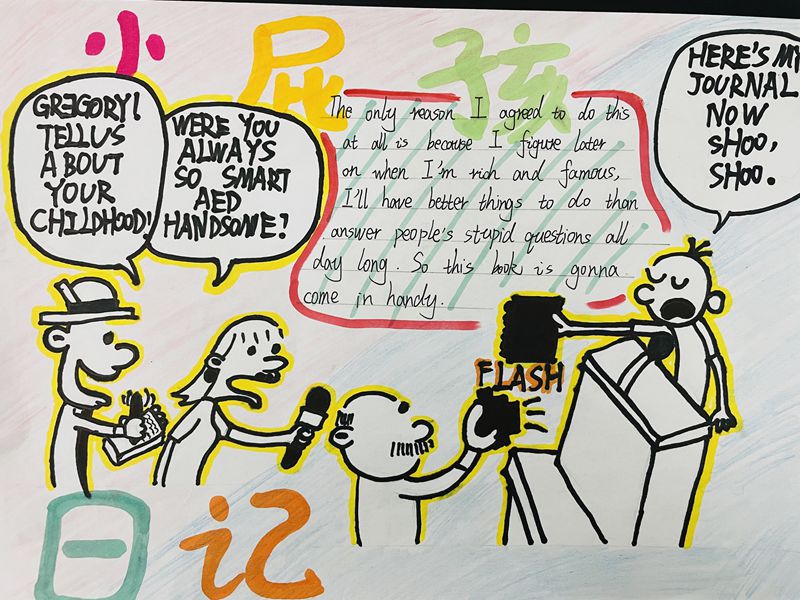 小屁孩
GREGORY!
TELL US
ABOUT
YOUR
CHILDHOOD!
WERE YOU
ALWAYS
SO SMART
AED
HANDSOME?
The only reason I agreed to do this
at all is because I figure later
on when I'm rich and famous,
I'll have better things to do than
answer people's stupid questions all
day long. So this book is gonna
come in handy.
HERE'S MY
JOURNAL
NOW
SHOO,
SHOO.
FLASH
日记